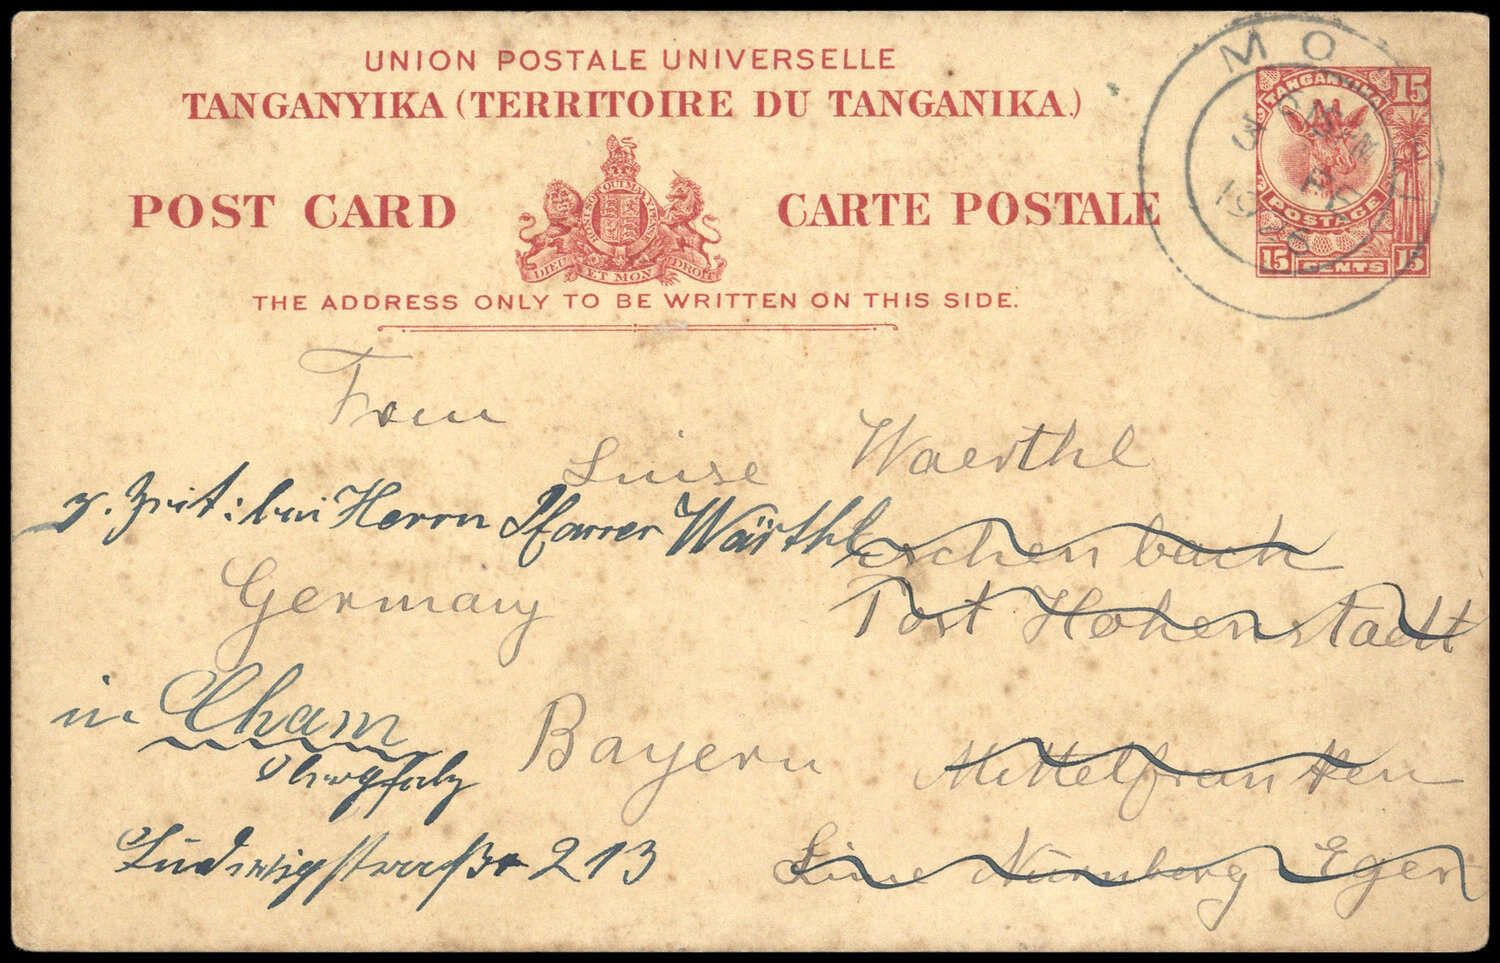 UNION POSTALE UNIVERSELLE
TANGANYIKA (TERRITOIRE DU TANGANIKA.)
POST CARD
CARTE POSTALE
HONI SOIT QUI MAL Y PENSE
DIEU ET MON DROIT
THE ADDRESS ONLY TO BE WRITTEN ON THIS SIDE.
TANGANYIKA
15
POSTAGE
15 CENTS 15
MO
1926
Frau
Luise Waerthl
z. Zeit: bei Herrn Pfarrer Wärthl
Eschenbach
Germany
Post Hohenstadt
in Cham
Oberpfalz
Bayern
Mittelfranken
Ludwigstraße 213
Linie Nürnberg Eger